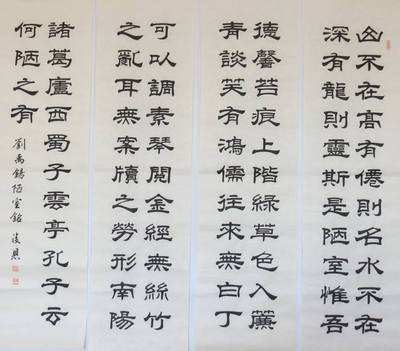 山不在高有僊則名水不在
深有龍則靈斯是陋室惟吾
德馨苔痕上階綠草色入簾
青談笑有鴻儒往來無白丁
可以調素琴閱金經無絲竹
之亂耳無案牘之勞形南陽
諸葛廬西蜀子雲亭孔子云
何陋之有
劉禹錫陋室銘